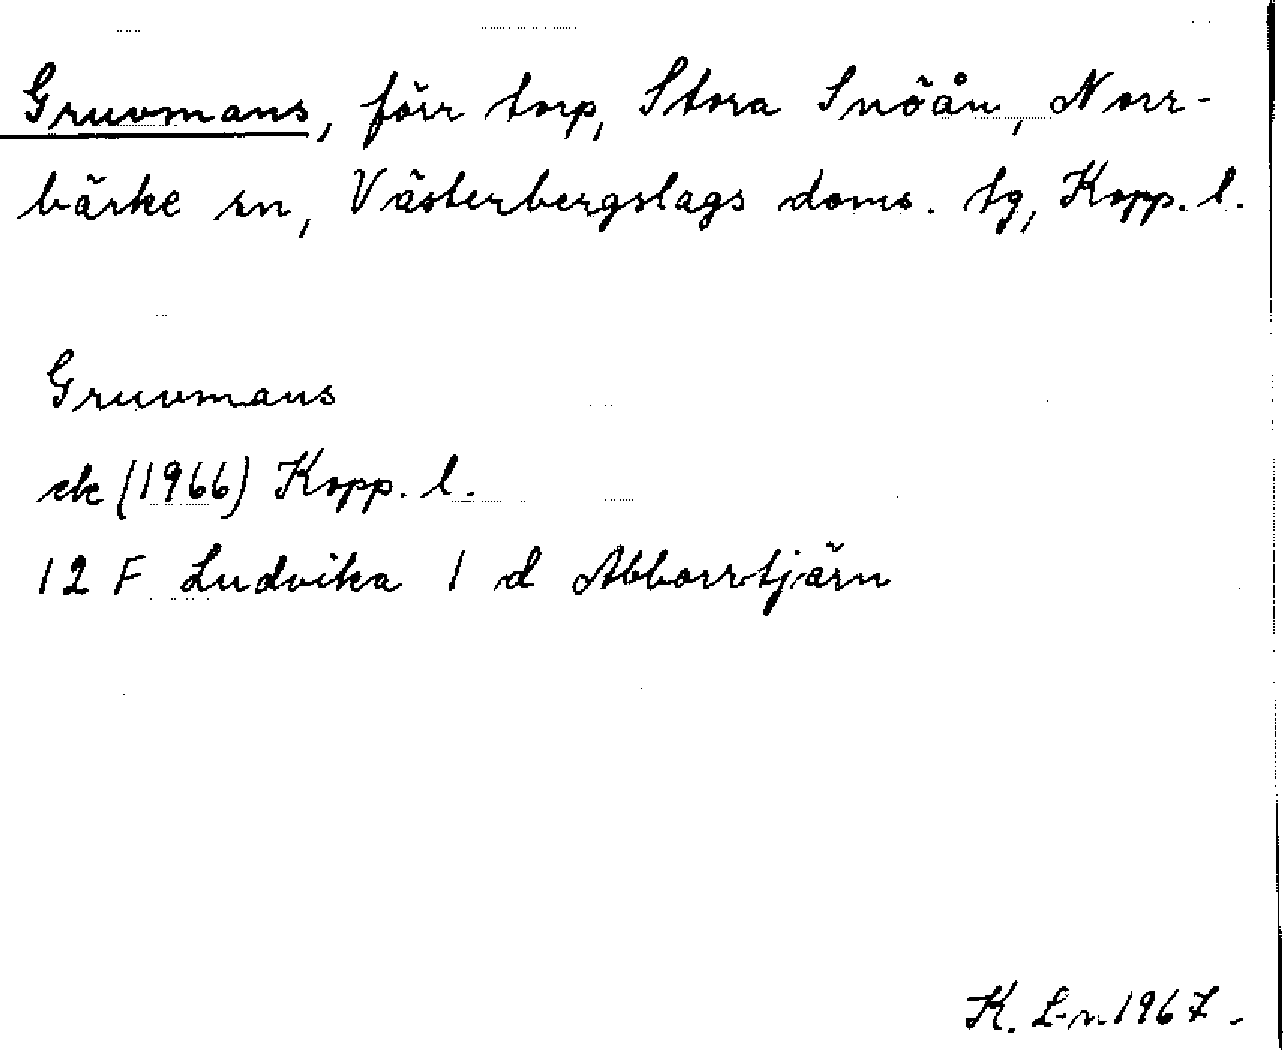 Gruvmans, förr torp, Stora Snöån, Norr-
bärke sn, Västerbergslags doms. tg, Kopp. l.
Gruvmans
ek (1966) Kopp. l.
12 F Ludvika 1 d Abborrtjärn
K. L-n. 1967.